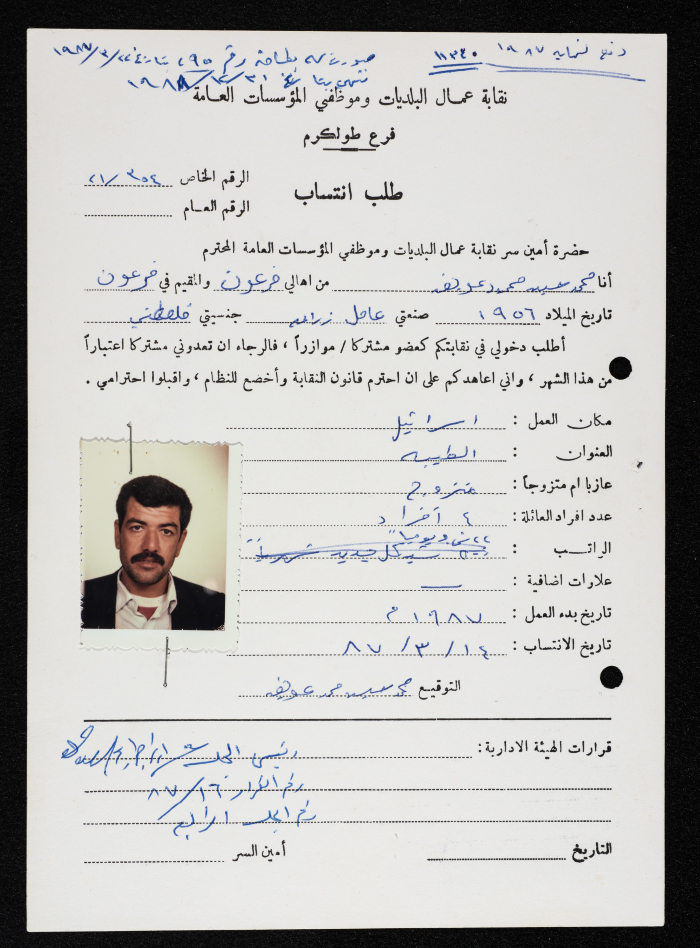 دفع لنهاية ١٩٨٧
١١٣٤٠
صورت له بطاقة رقم ٦٩٥ بتاريخ ٢٢/٣/١٩٨٧
تنتهي بتاريخ ٣١/٣/١٩٨٨
نقابة عمال البلديات وموظفي المؤسسات العامة
فرع طولكرم
الرقم الخاص ٢١/٣٥٤
طلب انتساب
الرقم العام
حضرة أمين سر نقابة عمال البلديات وموظفي المؤسسات العامة المحترم
أنا محمد سعيد محمد من اهالي فرعون والمقيم في فرعون
تاريخ الميلاد ١٩٥٦ صنعتي عامل زراعه جنسيتي فلسطني
أطلب دخولي في نقابتكم كعضو مشتركا / موازراً ، فالرجاء ان تعدوني مشتركا اعتباراً
من هذا الشهر ، واني اعاهدكم على ان احترم قانون النقابة وأخضع للنظام ، واقبلوا احترامي .
مكان العمل : اسرائيل
العنوان : الطيبه
عازبا ام متزوجاً : متزوج
عدد افراد العائلة : ٤ أفراد
الراتب : ٢٢ يوميا
علاوات اضافية : —
تاريخ بدء العمل : ١٩٨٧ م
تاريخ الانتساب : ١٤ / ٣ / ٨٧
التوقيع محمد سعيد محمد
قرارات الهيئة الادارية : رئيس
رقم القرار ١٦/٨٧
رقم الرابع
التاريخ
أمين السر